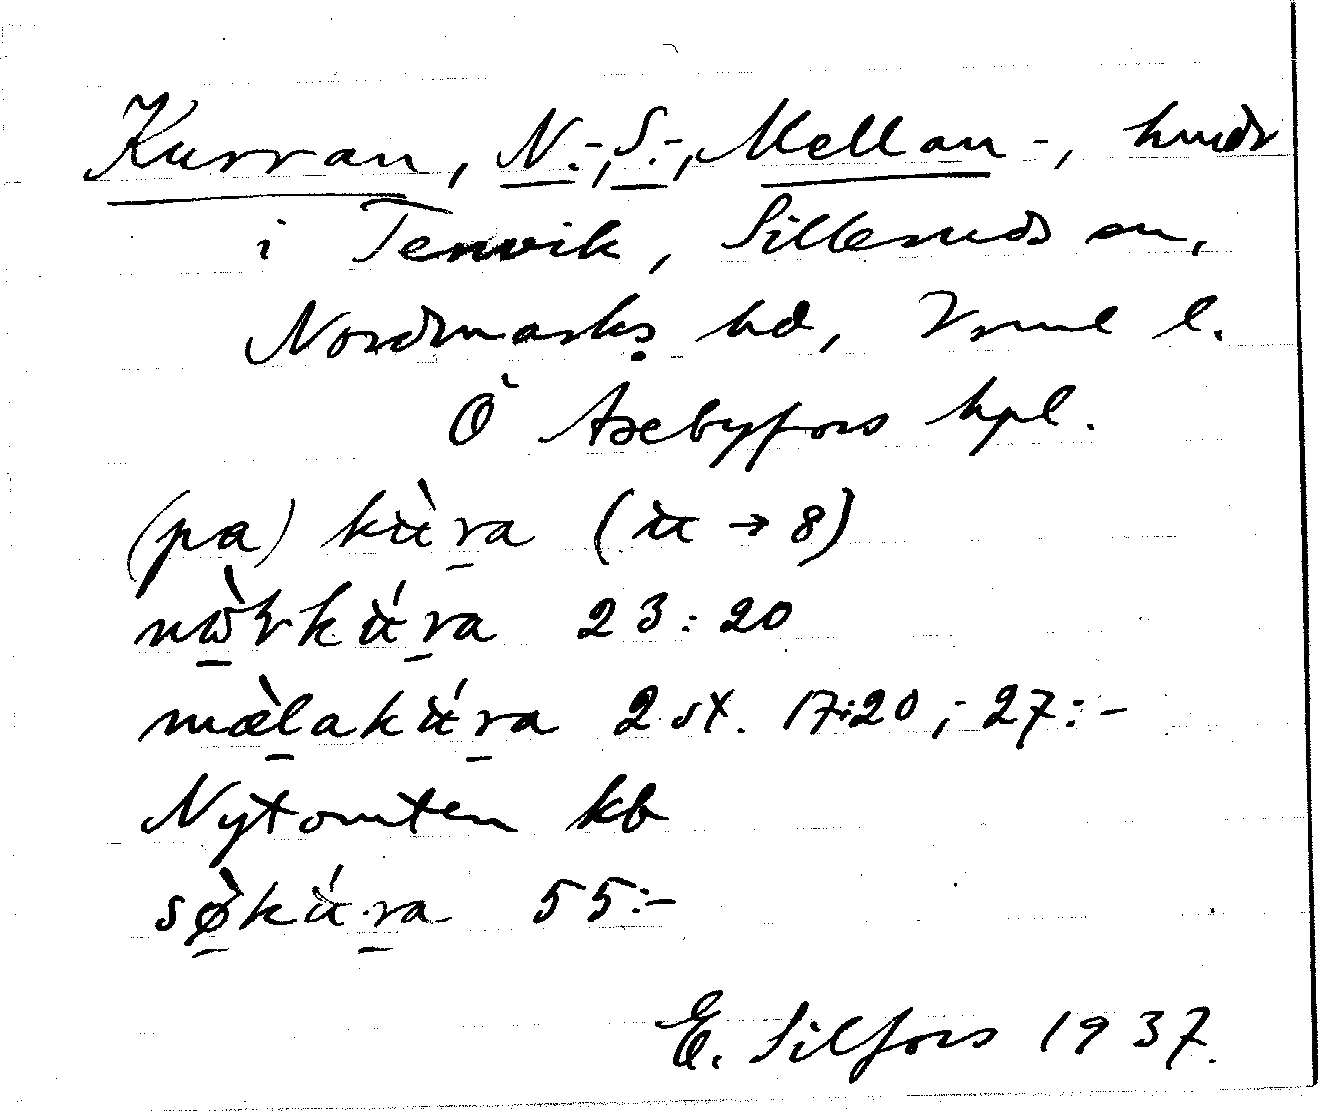 Kurran, N.-, S.-, Mellan-, hmdr
i Tenvik, Silleruds sn,
Nordmarks hd, Vrml l.
Ö Axebyfors hpl.
(pa) kùra (u → 8)
nωrkúra 23:20
mæ̀lakúra 2 st. 17:20; 27:-
Nytomten kb
sø̀kúra 55:-
E. Silfors 1937.